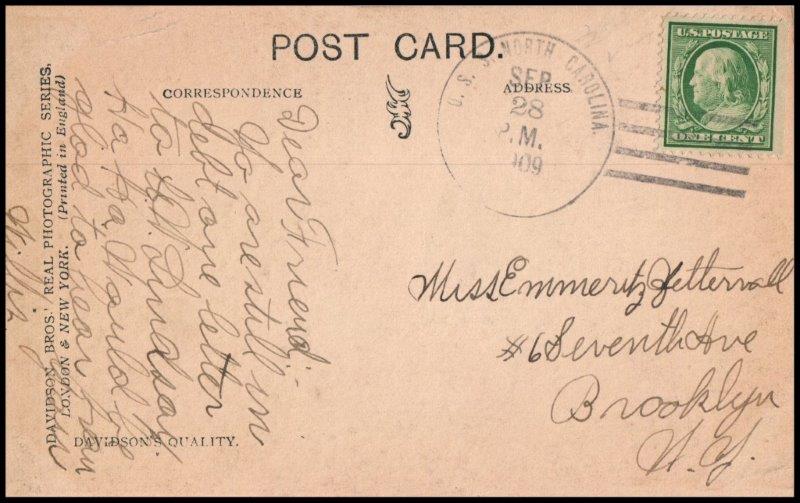 POST CARD.
CORRESPONDENCE
ADDRESS
U. S. S. NORTH CAROLINA.
SEP
28
P.M.
1909
U.S. POSTAGE
ONE CENT
Dear Friend:-
Yo are still in
debt one letter
to L.W. Lindsay
ha ha Would be
glad to hear from
you
Miss Emmeritz Zettervall
#6 Seventh Ave
Brooklyn
N.Y.
DAVIDSON BROS.' REAL PHOTOGRAPHIC SERIES.
LONDON & NEW YORK. (Printed in England)
DAVIDSON'S QUALITY.